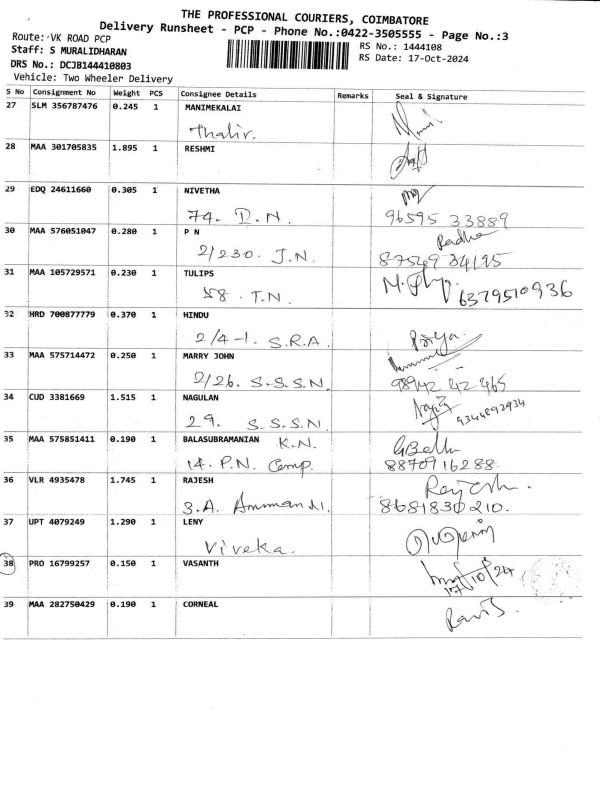 THE PROFESSIONAL COURIERS, COIMBATORE
Delivery Runsheet - PCP - Phone No.:0422-3505555 - Page No.:3
Route: VK ROAD PCP
RS No.: 1444108
Staff: S MURALIDHARAN
RS Date: 17-Oct-2024
DRS No.: DCJB144410803
Vehicle: Two Wheeler Delivery
S No Consignment No Weight PCS Consignee Details Remarks Seal & Signature
27 SLM 356787476 0.245 1 MANIMEKALAI
Thalir.
28 MAA 301705835 1.895 1 RESHMI
29 EDQ 24611660 0.305 1 NIVETHA
74. D.N. 96595 33889
30 MAA 576051047 0.280 1 P N Radha
2/230. J.N.
31 MAA 105729571 0.230 1 TULIPS
58. T.N. 6379510936
32 HRD 700877779 0.370 1 HINDU
2/4-1. S.R.A. Priya.
33 MAA 575714472 0.250 1 MARRY JOHN
2/26. S.S.S.N. 98942 42 465
34 CUD 3381669 1.515 1 NAGULAN
29. S.S.S.N. 9344892934
35 MAA 575851411 0.190 1 BALASUBRAMANIAN K.N.
14. P.N. Comp. 8870916288
36 VLR 4935478 1.745 1 RAJESH Rajesh.
3.A. 8681830210.
37 UPT 4079249 1.290 1 LENY
Viveka.
38 PRO 16799257 0.150 1 VASANTH
17/10/24
39 MAA 282750429 0.190 1 CORNEAL